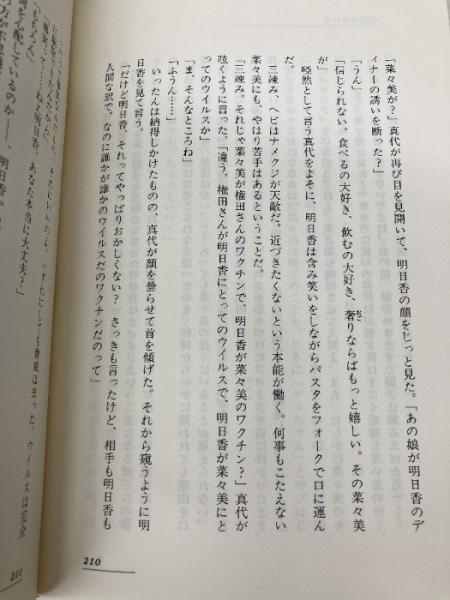 「菜々美が？」真代が再び目を見開いて、明日香の顔をじっと見た。「あの娘が明日香のデ
ィナーの誘いを断った？」
「うん」
「信じられない。食べるの大好き、飲むの大好き、奢りならばもっと嬉しい。その菜々美
が」
啞然として言う真代をよそに、明日香は含み笑いをしながらパスタをフォークで口に運ん
だ。
三竦み、ヘビはナメクジが天敵だ。近づきたくないという本能が働く。何事もこたえない
菜々美にも、やはり苦手はあるということだ。
「三竦み。それじゃ菜々美が権田さんのワクチンで、明日香が菜々美のワクチン？」真代が
呟くように言った。「違う。権田さんが明日香にとってのウイルスで、明日香が菜々美にと
ってのウイルスか」
「ま、そんなところね」
「ふうん……」
いったんは納得しかけたものの、真代が顔を曇らせて首を傾げた。それから窺うように明
日香を見て言う。
「だけど明日香、それってやっぱりおかしくない？　さっきも言ったけど、相手も明日香も
人間な訳で。なのに誰かが誰かのウイルスだのワクチンだのって」
210
脅威は去った。ウイルスは完全
ねえ明日香、あなた本当に大丈夫？」
「もちろん」
配しているのか――、明日香
211